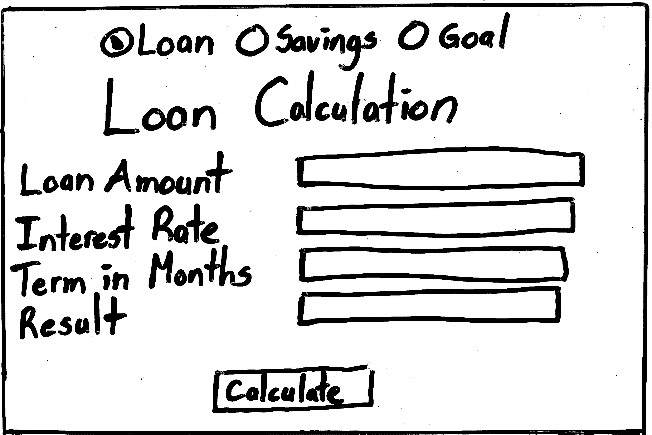 Loan Savings Goal
Loan Calculation
Loan Amount
Interest Rate
Term in Months
Result
Calculate